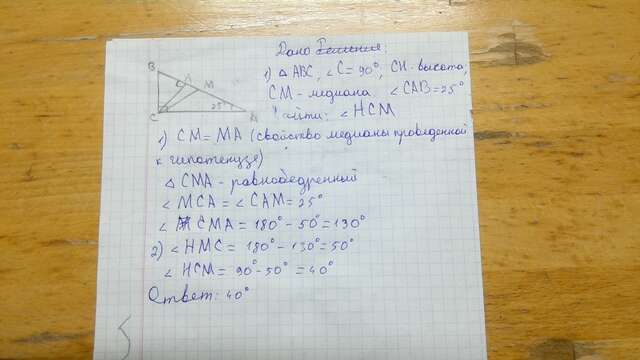 Дано Решение:
1) △ ABC, ∠C = 90°, CH - высота,
CM - медиана. ∠CAB = 25°
Найти: ∠HCM
B
M
25°
C
A
1) CM = MA (свойство медианы проведенной
к гипотенузе)
△ CMA - равнобедренный
∠ MCA = ∠ CAM = 25°
∠ CMA = 180° - 50° = 130°
2) ∠ HMC = 180° - 130° = 50°
∠ HCM = 90° - 50° = 40°
Ответ: 40°